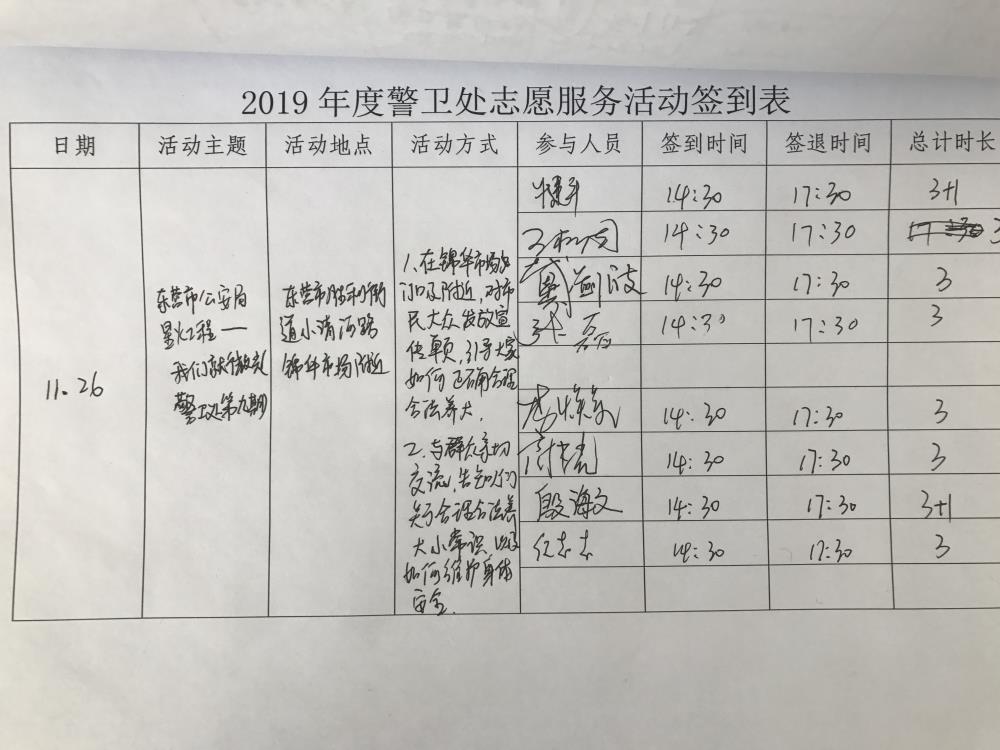 2019年度警卫处志愿服务活动签到表
日期 活动主题 活动地点 活动方式 参与人员 签到时间 签退时间 总计时长
11.26
东营市公安局
星火工程一
我们在行动
警卫处第九期
东营市胜利街
道小清河路
锦华市场附近
1、在锦华市场
门口及附近,对市
民大众发放宣
传单页,引导大家
如何正确合理
合法养犬.
2.与群众亲切
交流,告知他们
关于合理合法养
犬小常识,以及
如何维护身体
安全.
14:30 17:30 3+1
14:30 17:30 3
14:30 17:30 3
张磊 14:30 17:30 3
14:30 17:30 3
14:30 17:30 3
殷海文 14:30 17:30 3+1
14:30 17:30 3